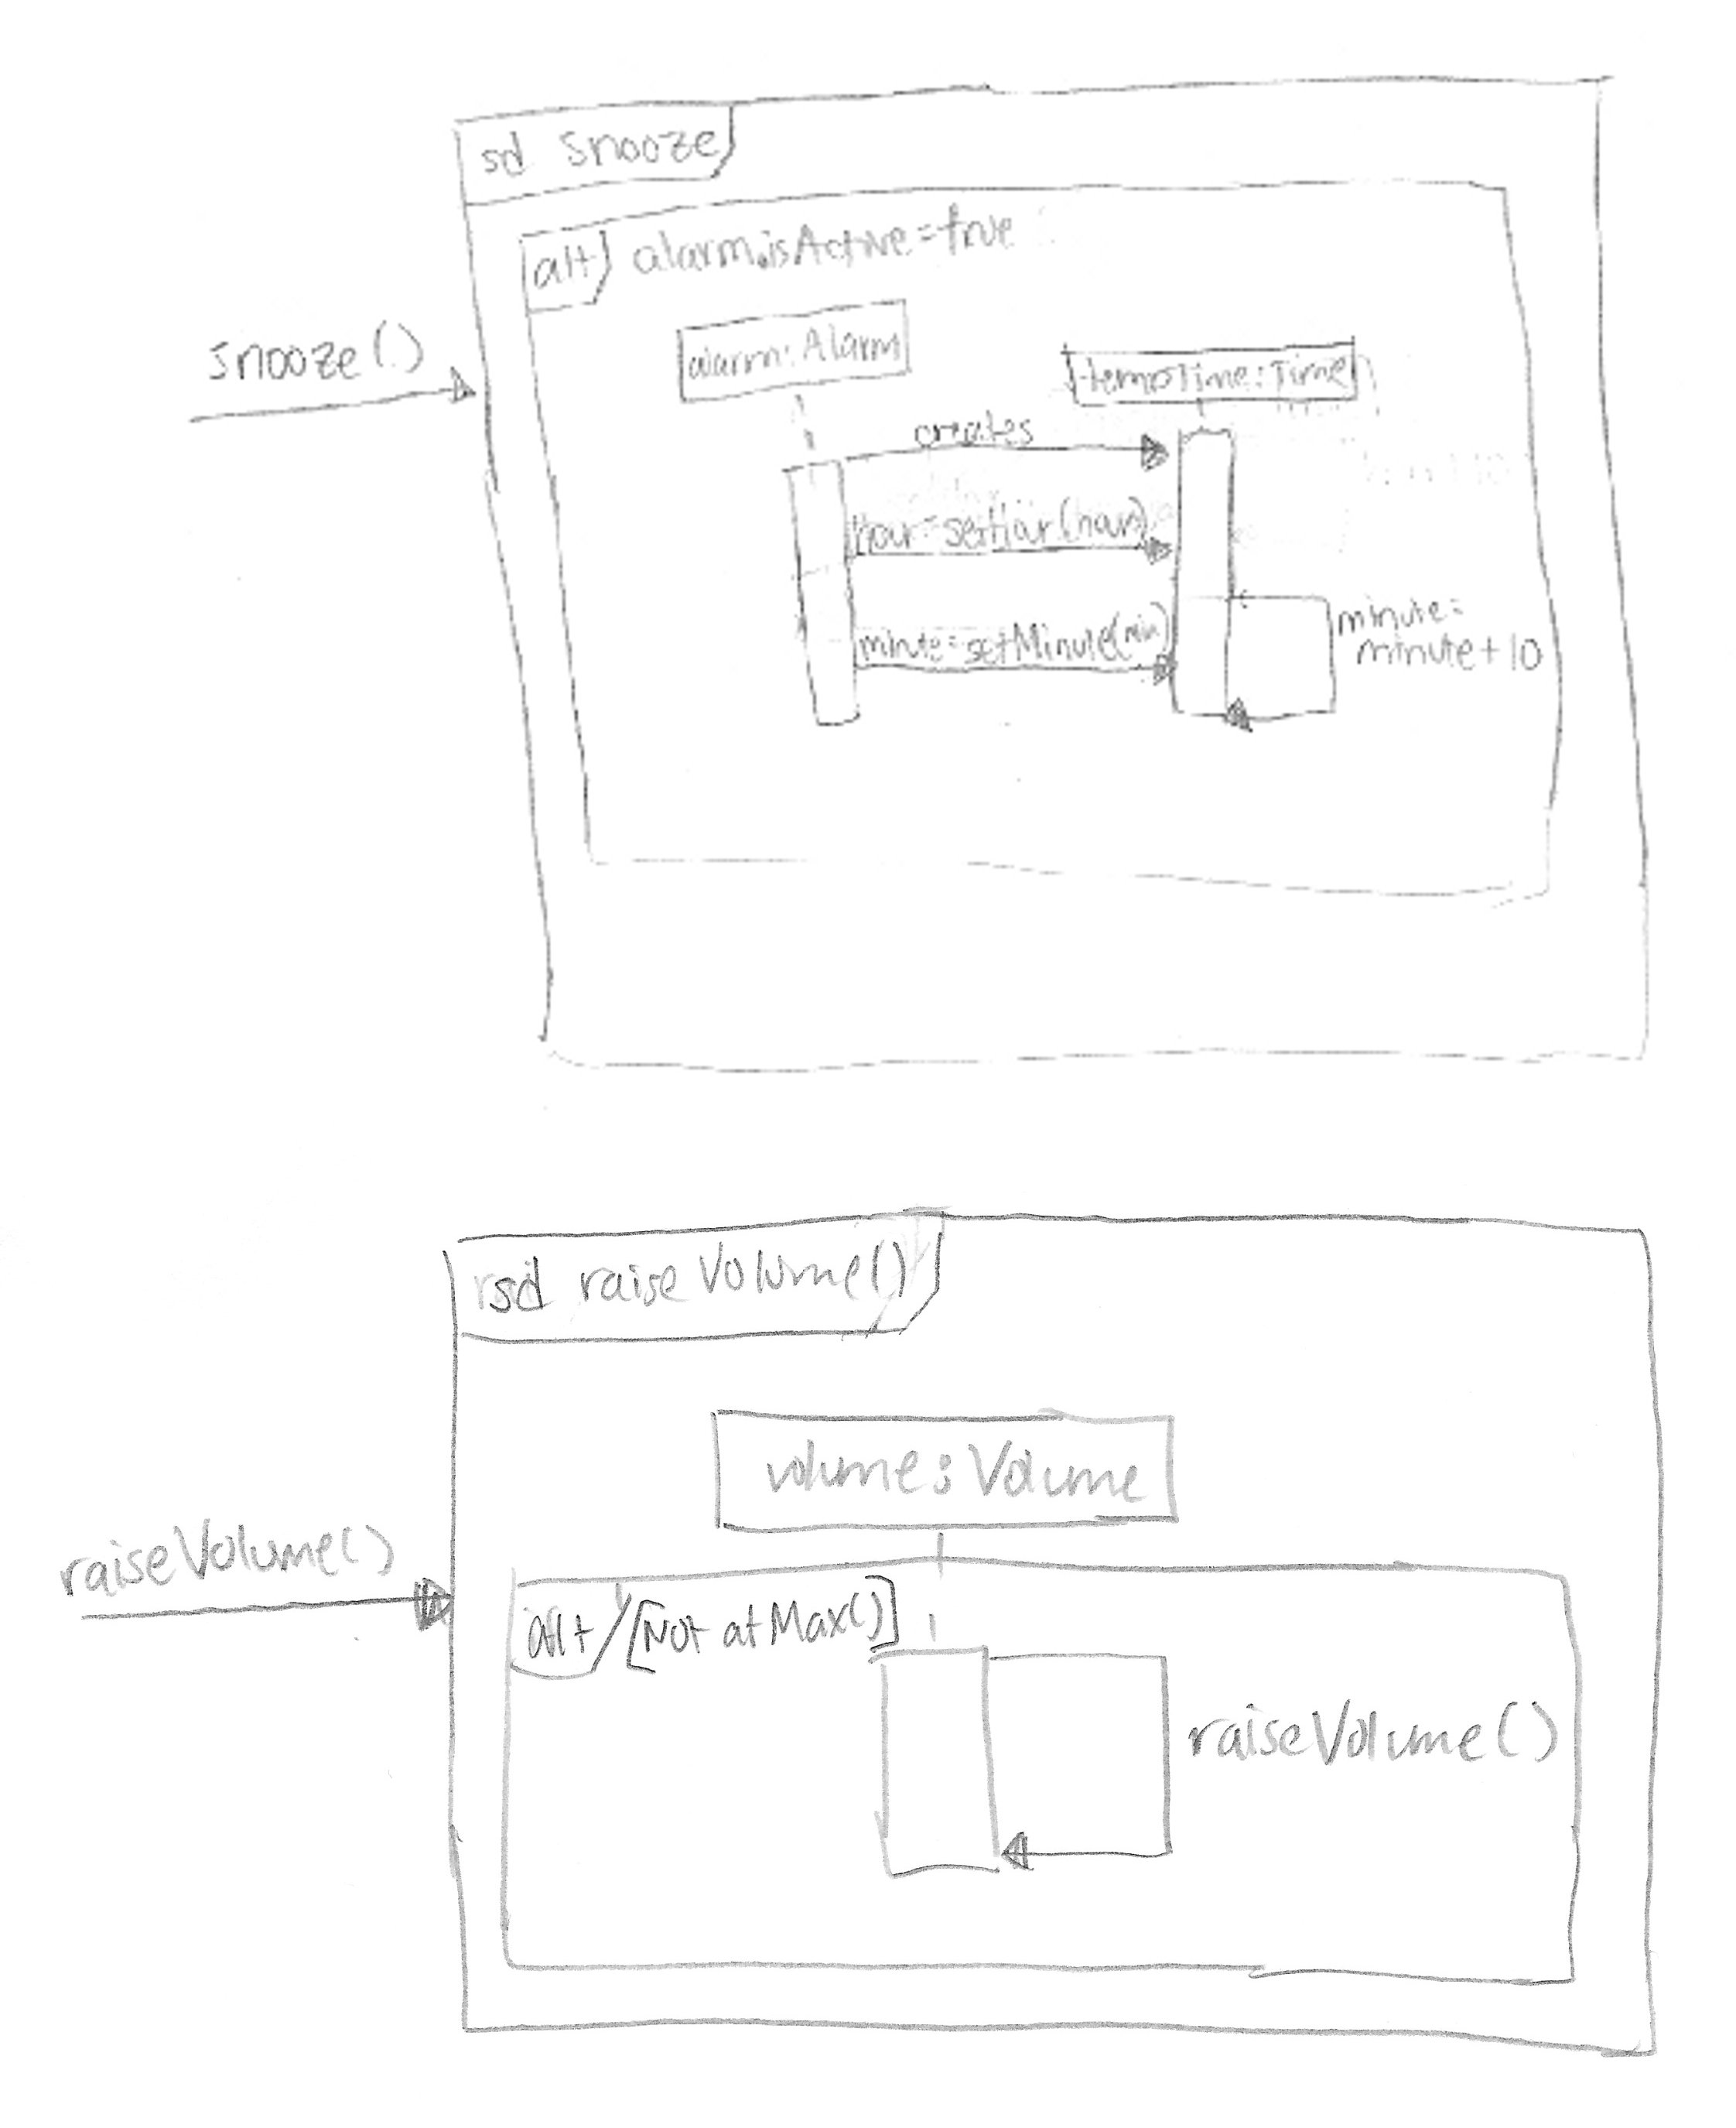 sd snooze
alt alarm.isActive=true
snooze()
alarm:Alarm
tempTime:Time
creates
hour=setHour(hour)
minute=setMinute(min)
minute=
minute+10
sd raiseVolume()
volume:Volume
raiseVolume()
alt [Not atMax()]
raiseVolume()